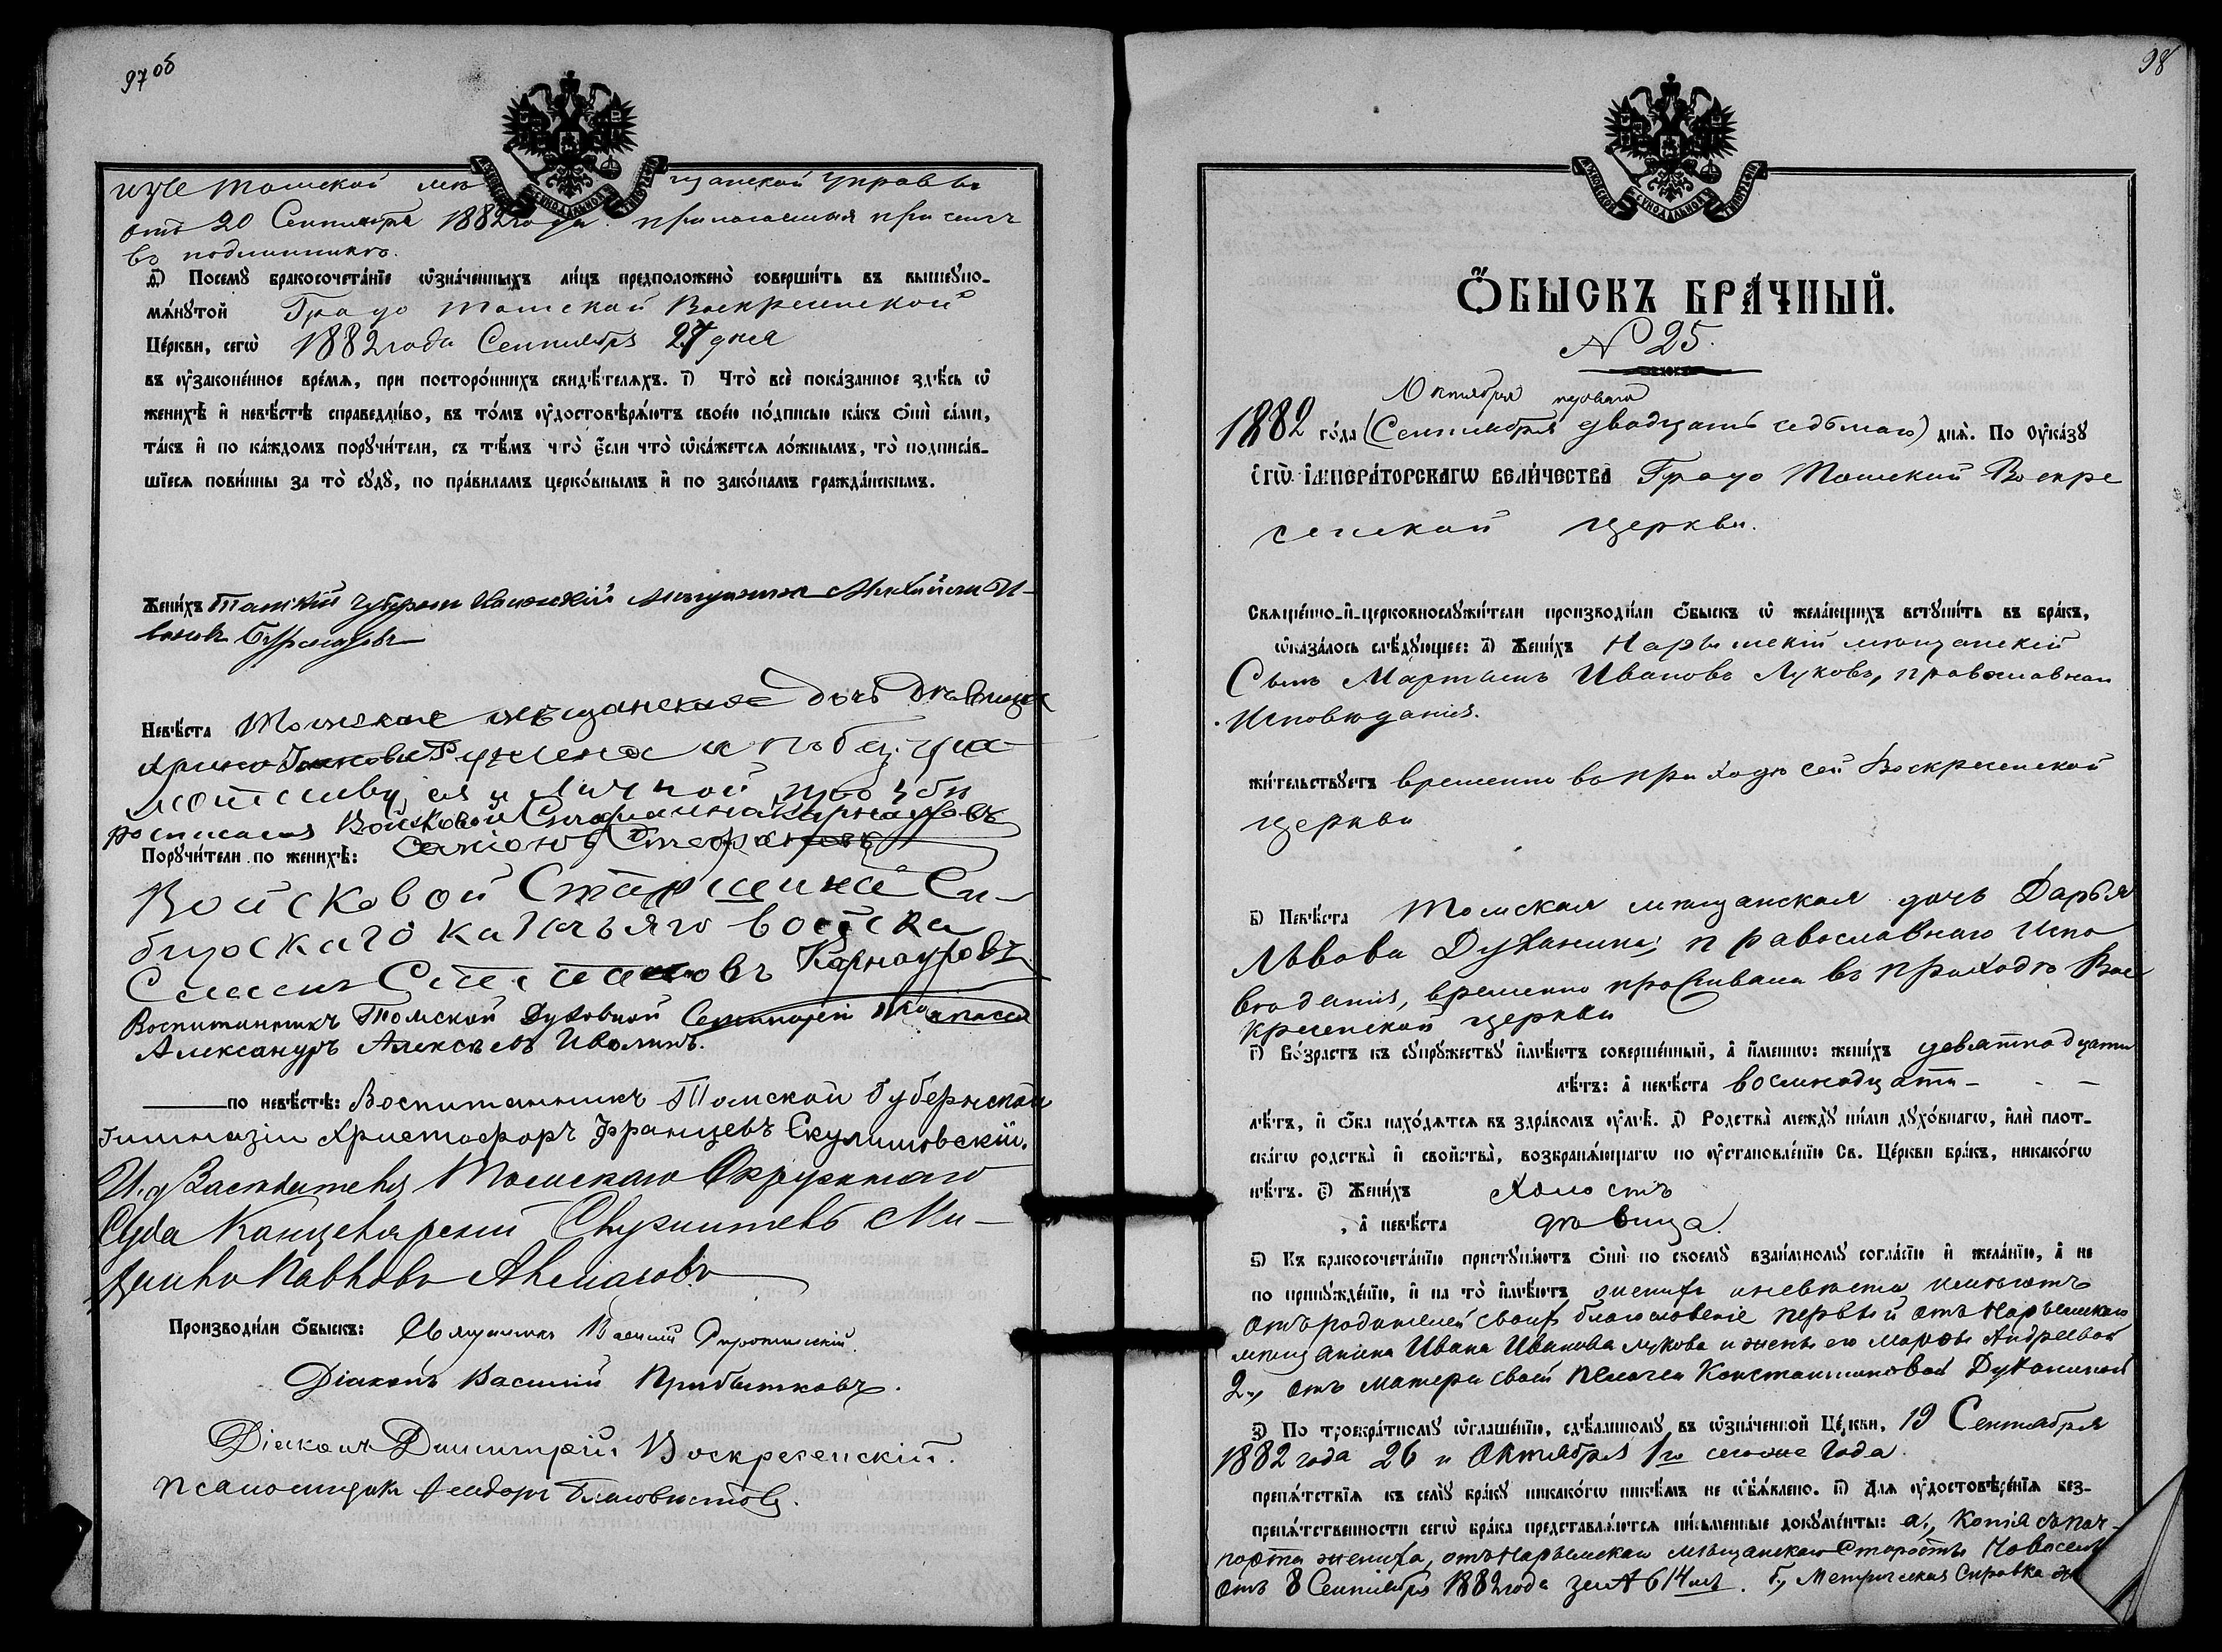 97 об
Томской мѣщанской Управы
отъ 20 Сентября 1882 года прилагаемыя при семъ
въ подлинникѣ.
д҃і) Посемꙋ̀ бракосочета́нїе ѡ҆зна́ченныхъ ли́цъ предположено̀ соверши́ть въ вышеꙋпо-
мѧ́нꙋтой Градо Томской Воскресенской
Це́ркви, сегѡ̀ 1882 года Сентября 27 дня
въ ᲂу҆законе́нное вре́мѧ, при посторо́ннихъ свидѣ́телѧхъ. і҃) Что̀ всѐ пока́занное здѣ́сь ѡ҆
женихѣ̀ и҆ невѣ́стѣ справедли́во, въ то́мъ ᲂу҆достовѣрѧ́ютъ свое́ю по́дписью ка́къ ѻ҆нѝ са́ми,
та́къ и҆ по ка́ждомъ порꙋчи́тели, съ тѣ́мъ что̀ є҆́сли что̀ ѡ҆ка́жетсѧ ло́жнымъ, то̀ подписа́в-
шїесѧ пови́нны за то̀ сꙋдꙋ̀, по пра́виламъ церко́внымъ и҆ по зако́намъ гражда́нскимъ.
Жени́хъ Томской губерніи мѣщанинъ И-
вановъ
Невѣ́ста Томская мѣщанская дочь Дѣвица
а по без гра
мотству ея и личной прозьбы
росписался Войсковой Старшина Карнауховъ
Порꙋчи́тели по женихѣ̀: Семіонъ Стефановъ
Войсковой Старшина Си-
бирскаго казачьяго войска
Степановъ Карнауховъ
Воспитанникъ Томской Духовной Семинаріи класса
Александръ Алексѣевъ Иволинъ.
по невѣ́стѣ: Воспитанникъ Томской Губернской
Гимназіи Христофоръ Францевъ Екулишовскій.
И. д. Засѣдателя Томскаго Окружнаго
Суда Канцелярскій Служитель Ми-
хаилъ Павловъ
Производи́ли ѻ҆́быскъ: Священникъ Василій
Діаконъ Василій Прибытковъ.
Діаконъ Димитрій Воскресенскій.
Псаломщикъ Феодоръ Благовистовъ.
98
Ѻ҆́быскъ бра́чный.
N 25.
Октября перваго
1882 го́да (Сентября двадцать седьмаго) днѧ̀. По Оу҆ка́зꙋ
є҆гѡ̀ і҆мпера́торскагѡ вели́чества Градо Томской Воскре
сенской церкви.
Свѧще́нно-и҆-церковнослꙋжи́тели производи́ли ѻ҆́быскъ ѡ҆ жела́ющихъ встꙋпи́ть въ бра́къ,
ѡ҆каза́лось слѣ́дꙋющее: а҃) Жени́хъ Нарымскій мѣщанскій
Сынъ Мартинъ Ивановъ Луковъ, православнаго
Исповѣданія.
жи́тельствꙋетъ временно въ приходѣ сей Воскресенской
церкви
в҃) Невѣ́ста Томская мѣщанская дочь Дарья
Львова Духанина, православнаго испо
вѣданія, временно проживала въ приходѣ Вос
кресенской церкви
г҃) Во́зрастъ къ сꙋпрꙋ́жествꙋ и҆мѣ́ютъ соверше́нный, а҆ и҆́меннѡ: жени́хъ девятнадцати
лѣ́тъ: а҆ невѣ́ста восемнадцати -
лѣ́тъ, и҆ ѻ҆́ба нахо́дѧтсѧ въ здра́вомъ ᲂу҆мѣ̀. д҃) Родства̀ междꙋ̀ ни́ми дꙋхо́внагѡ, и҆лѝ плот-
ска́гѡ родства̀ и҆ сво́йства̀, возбранѧ́ющагѡ по ᲂу҆становле́нїю Св. Це́ркви бра́къ, никако́гѡ
нѣ́тъ. є҃) Жени́хъ холостъ
, а҆ невѣ́ста дѣвица.
ѕ҃) Къ бракосочета́нїю пристꙋпа́ютъ ѻ҆нѝ по своемꙋ̀ взаи́мномꙋ согла́сїю и҆ жела́нїю, а҆ не
по принꙋжде́нїю, и҆ на то̀ и҆мѣ́ютъ женихъ и невѣста имѣютъ
отъ родителей своихъ благословеніе первый отъ Нарымскаго
мѣщанина Ивана Иванова Лукова и жены его Марѳы Андреевой
2., отъ матери своей Пелагеи Константиновой Духаниной
з҃) По троекра́тномꙋ ѡ҆глаше́нїю, сдѣ́ланномꙋ въ ѡ҆зна́ченной Це́ркви, 19 Сентября
1882 года 26 и Октября 1го сегоже года
препѧ́тствїѧ къ семꙋ̀ бра́кꙋ никако́гѡ никѣ́мъ не ѡ҆б̾ѧ́влено. и҃) Длѧ ᲂу҆достовѣре́нїѧ без-
препѧ́тственности сегѡ̀ бра́ка представлѧ́ютсѧ пи́сьменные докꙋме́нты: а., Копія съ пас-
порта жениха, отъ Нарымскаго мѣщанскаго Старосты
отъ 8 Сентября 1882 года за № 614мъ. б., Метрическая Справка